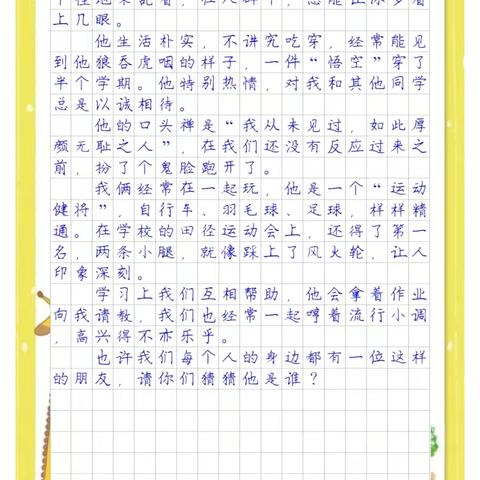 上几眼。
他生活朴实，不讲究吃穿，经常能见
到他狼吞虎咽的样子，一件“悟空”穿了
半个学期。他特别热情，对我和其他同学
总是以诚相待。
他的口头禅是“我从未见过，如此厚
颜无耻之人”，在我们还没有反应过来之
前，扮了个鬼脸跑开了。
我俩经常在一起玩，他是一个“运动
健将”，自行车、羽毛球、足球，样样精
通。在学校的田径运动会上，还得了第一
名，两条小腿，就像踩上了风火轮，让人
印象深刻。
学习上我们互相帮助，他会拿着作业
向我请教，我们也经常一起哼着流行小调
，高兴得不亦乐乎。
也许我们每个人的身边都有一位这样
的朋友，请你们猜猜他是谁？